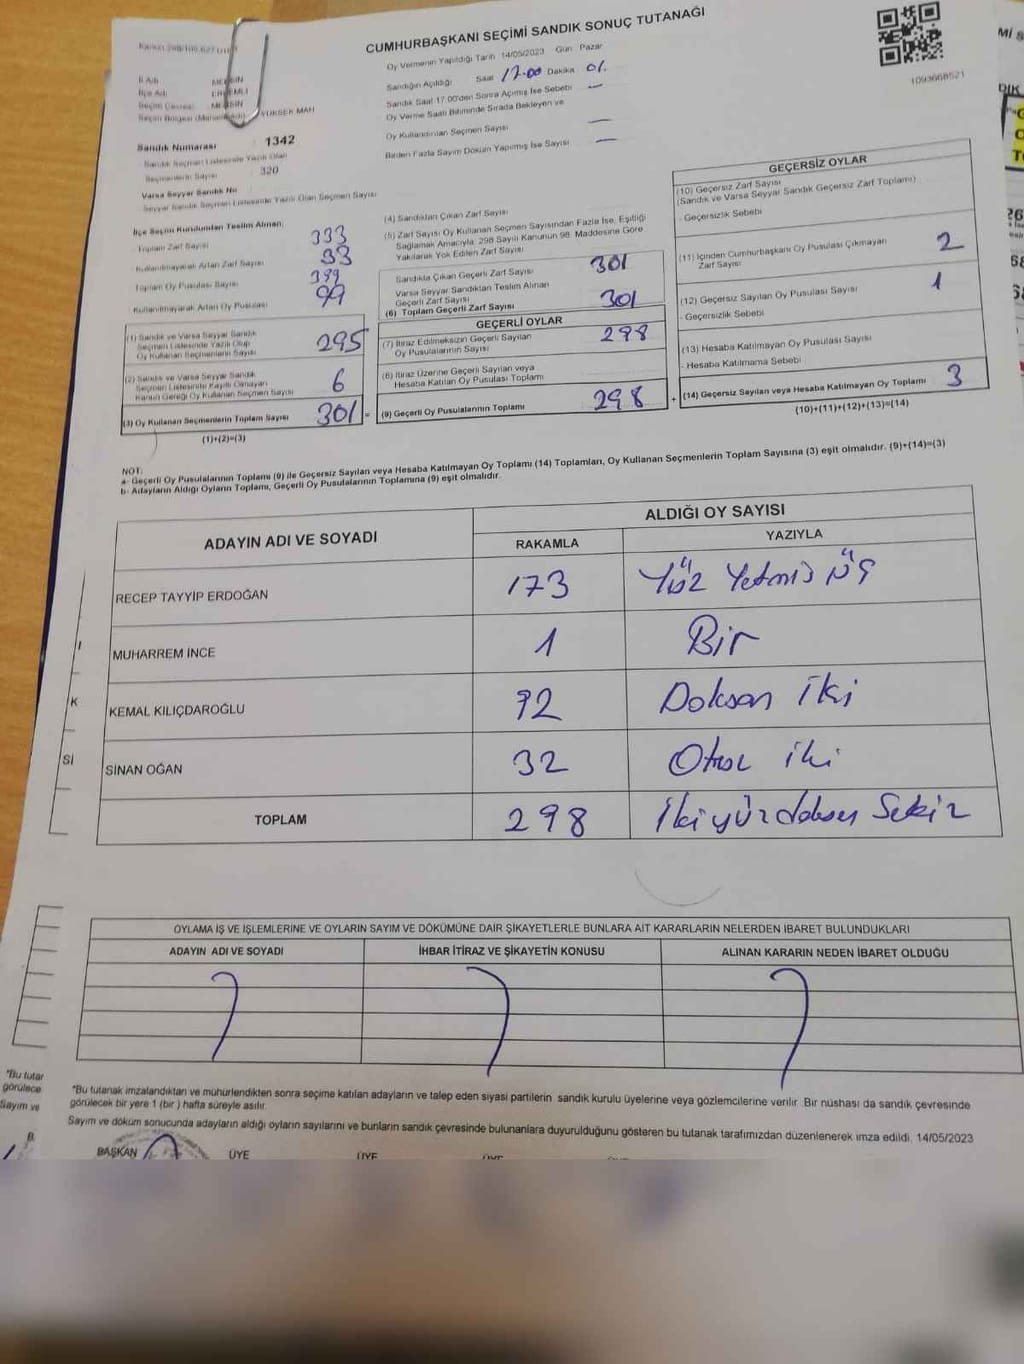 CUMHURBAŞKANI SEÇİMİ SANDIK SONUÇ TUTANAĞI
Oy Vermenin Yapıldığı Tarih 14/05/2023 Gün Pazar
Sandığın Açıldığı Saat 17.00 Dakika 01.
Sandık Saat 17.00'den Sonra Açılmış İse Sebebi —
Oy Verme Saati Bitiminde Sırada Bekleyen ve
Oy Kullandırılan Seçmen Sayısı —
Birden Fazla Sayım Döküm Yapılmış İse Sayısı —
1093668521
İl Adı MERSİN
İlçe Adı ERDEMLİ
Seçim Çevresi MERSİN
YÜKSEK MAH
Sandık Numarası 1342
Sandık Seçmen Listesinde Yazılı Olan
Seçmenlerin Sayısı 320
Varsa Seyyar Sandık No
Seyyar Sandık Seçmen Listesinde Yazılı Olan Seçmen Sayısı
İlçe Seçim Kurulundan Teslim Alınan;
Toplam Zarf Sayısı 333
Kullanılmayarak Artan Zarf Sayısı 33
Toplam Oy Pusulası Sayısı 399
Kullanılmayarak Artan Oy Pusulası 99
(1) Sandık ve Varsa Seyyar Sandık
Seçmen Listesinde Yazılı Olup
Oy Kullanan Seçmenlerin Sayısı 295
(2) Sandık ve Varsa Seyyar Sandık
Seçmen Listesinde Kayıtlı Olmayan
Kanun Gereği Oy Kullanan Seçmen Sayısı 6
(3) Oy Kullanan Seçmenlerin Toplam Sayısı 301 =
(1)+(2)=(3)
(4) Sandıktan Çıkan Zarf Sayısı
(5) Zarf Sayısı Oy Kullanan Seçmen Sayısından Fazla İse, Eşitliği
Sağlamak Amacıyla, 298 Sayılı Kanunun 98. Maddesine Göre
Yakılarak Yok Edilen Zarf Sayısı
Sandıkta Çıkan Geçerli Zarf Sayısı 301
Varsa Seyyar Sandıktan Teslim Alınan
Geçerli Zarf Sayısı
(6) Toplam Geçerli Zarf Sayısı 301
GEÇERLİ OYLAR
(7) İtiraz Edilmeksizin Geçerli Sayılan
Oy Pusulalarının Sayısı 298
(8) İtiraz Üzerine Geçerli Sayılan veya
Hesaba Katılan Oy Pusulası Toplamı
(9) Geçerli Oy Pusulalarının Toplamı 298 +
GEÇERSİZ OYLAR
(10) Geçersiz Zarf Sayısı
(Sandık ve Varsa Seyyar Sandık Geçersiz Zarf Toplamı)
- Geçersizlik Sebebi
(11) İçinden Cumhurbaşkanı Oy Pusulası Çıkmayan
Zarf Sayısı 2
(12) Geçersiz Sayılan Oy Pusulası Sayısı 1
- Geçersizlik Sebebi
(13) Hesaba Katılmayan Oy Pusulası Sayısı
- Hesaba Katılmama Sebebi
(14) Geçersiz Sayılan veya Hesaba Katılmayan Oy Toplamı 3
(10)+(11)+(12)+(13)=(14)
NOT:
a- Geçerli Oy Pusulalarının Toplamı (9) ile Geçersiz Sayılan veya Hesaba Katılmayan Oy Toplamı (14) Toplamları, Oy Kullanan Seçmenlerin Toplam Sayısına (3) eşit olmalıdır. (9)+(14)=(3)
b- Adayların Aldığı Oyların Toplamı, Geçerli Oy Pusulalarının Toplamına (9) eşit olmalıdır.
ADAYIN ADI VE SOYADI
ALDIĞI OY SAYISI
RAKAMLA YAZIYLA
RECEP TAYYİP ERDOĞAN 173 Yüz Yetmiş Üç
MUHARREM İNCE 1 Bir
KEMAL KILIÇDAROĞLU 92 Doksan İki
SİNAN OĞAN 32 Otuz iki
TOPLAM 298 İkiyüzdoksan Sekiz
OYLAMA İŞ VE İŞLEMLERİNE VE OYLARIN SAYIM VE DÖKÜMÜNE DAİR ŞİKAYETLERLE BUNLARA AİT KARARLARIN NELERDEN İBARET BULUNDUKLARI
ADAYIN ADI VE SOYADI İHBAR İTİRAZ VE ŞİKAYETİN KONUSU ALINAN KARARIN NEDEN İBARET OLDUĞU
*Bu tutanak imzalandıktan ve mühürlendikten sonra seçime katılan adayların ve talep eden siyasi partilerin sandık kurulu üyelerine veya gözlemcilerine verilir. Bir nüshası da sandık çevresinde
görülecek bir yere 1 (bir) hafta süreyle asılır.
Sayım ve döküm sonucunda adayların aldığı oyların sayılarını ve bunların sandık çevresinde bulunanlara duyurulduğunu gösteren bu tutanak tarafımızdan düzenlenerek imza edildi. 14/05/2023
BAŞKAN ÜYE ÜYE
*Bu tutar
görülece
Sayım ve